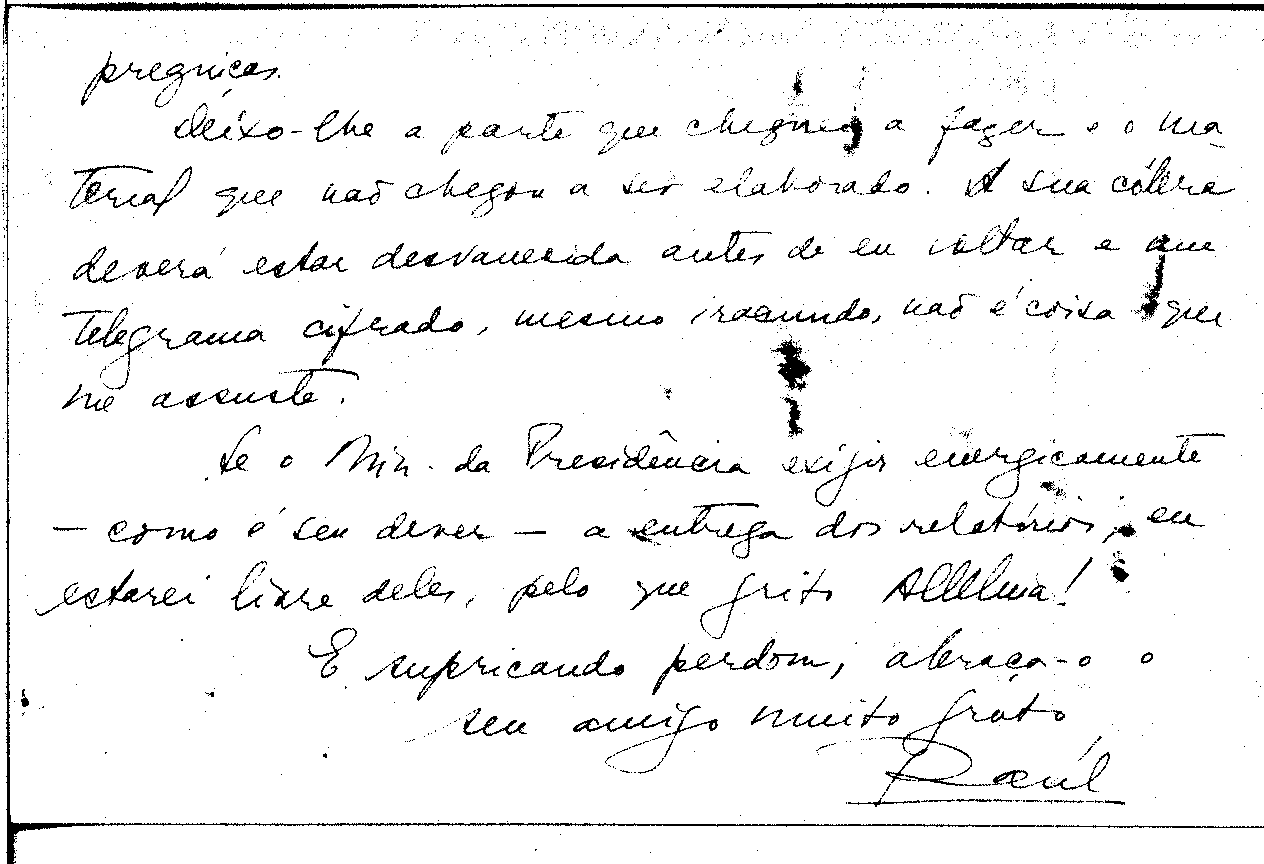 preguiças.
Deixo-lhe a parte que cheguei a fazer e o ma-
terial que não chegou a ser elaborado. A sua cólera
deverá estar desvanecida antes de eu voltar e que
telegrama cifrado, mesmo iracundo, não é coisa que
me assuste.
Se o Min. da Presidência exigir energicamente
— como é seu dever — a entrega dos relatórios, eu
estarei livre deles, pelo que grito Alleluia!
E supricando perdom, abraça-o o
seu amigo muito grato
Raúl